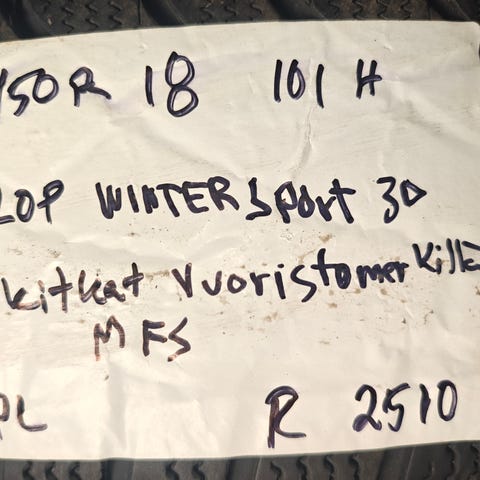 /50R 18 101 H
LOP WINTER Sport 3D
kitkat vuoristomerkillä
MFS
PL R 2510